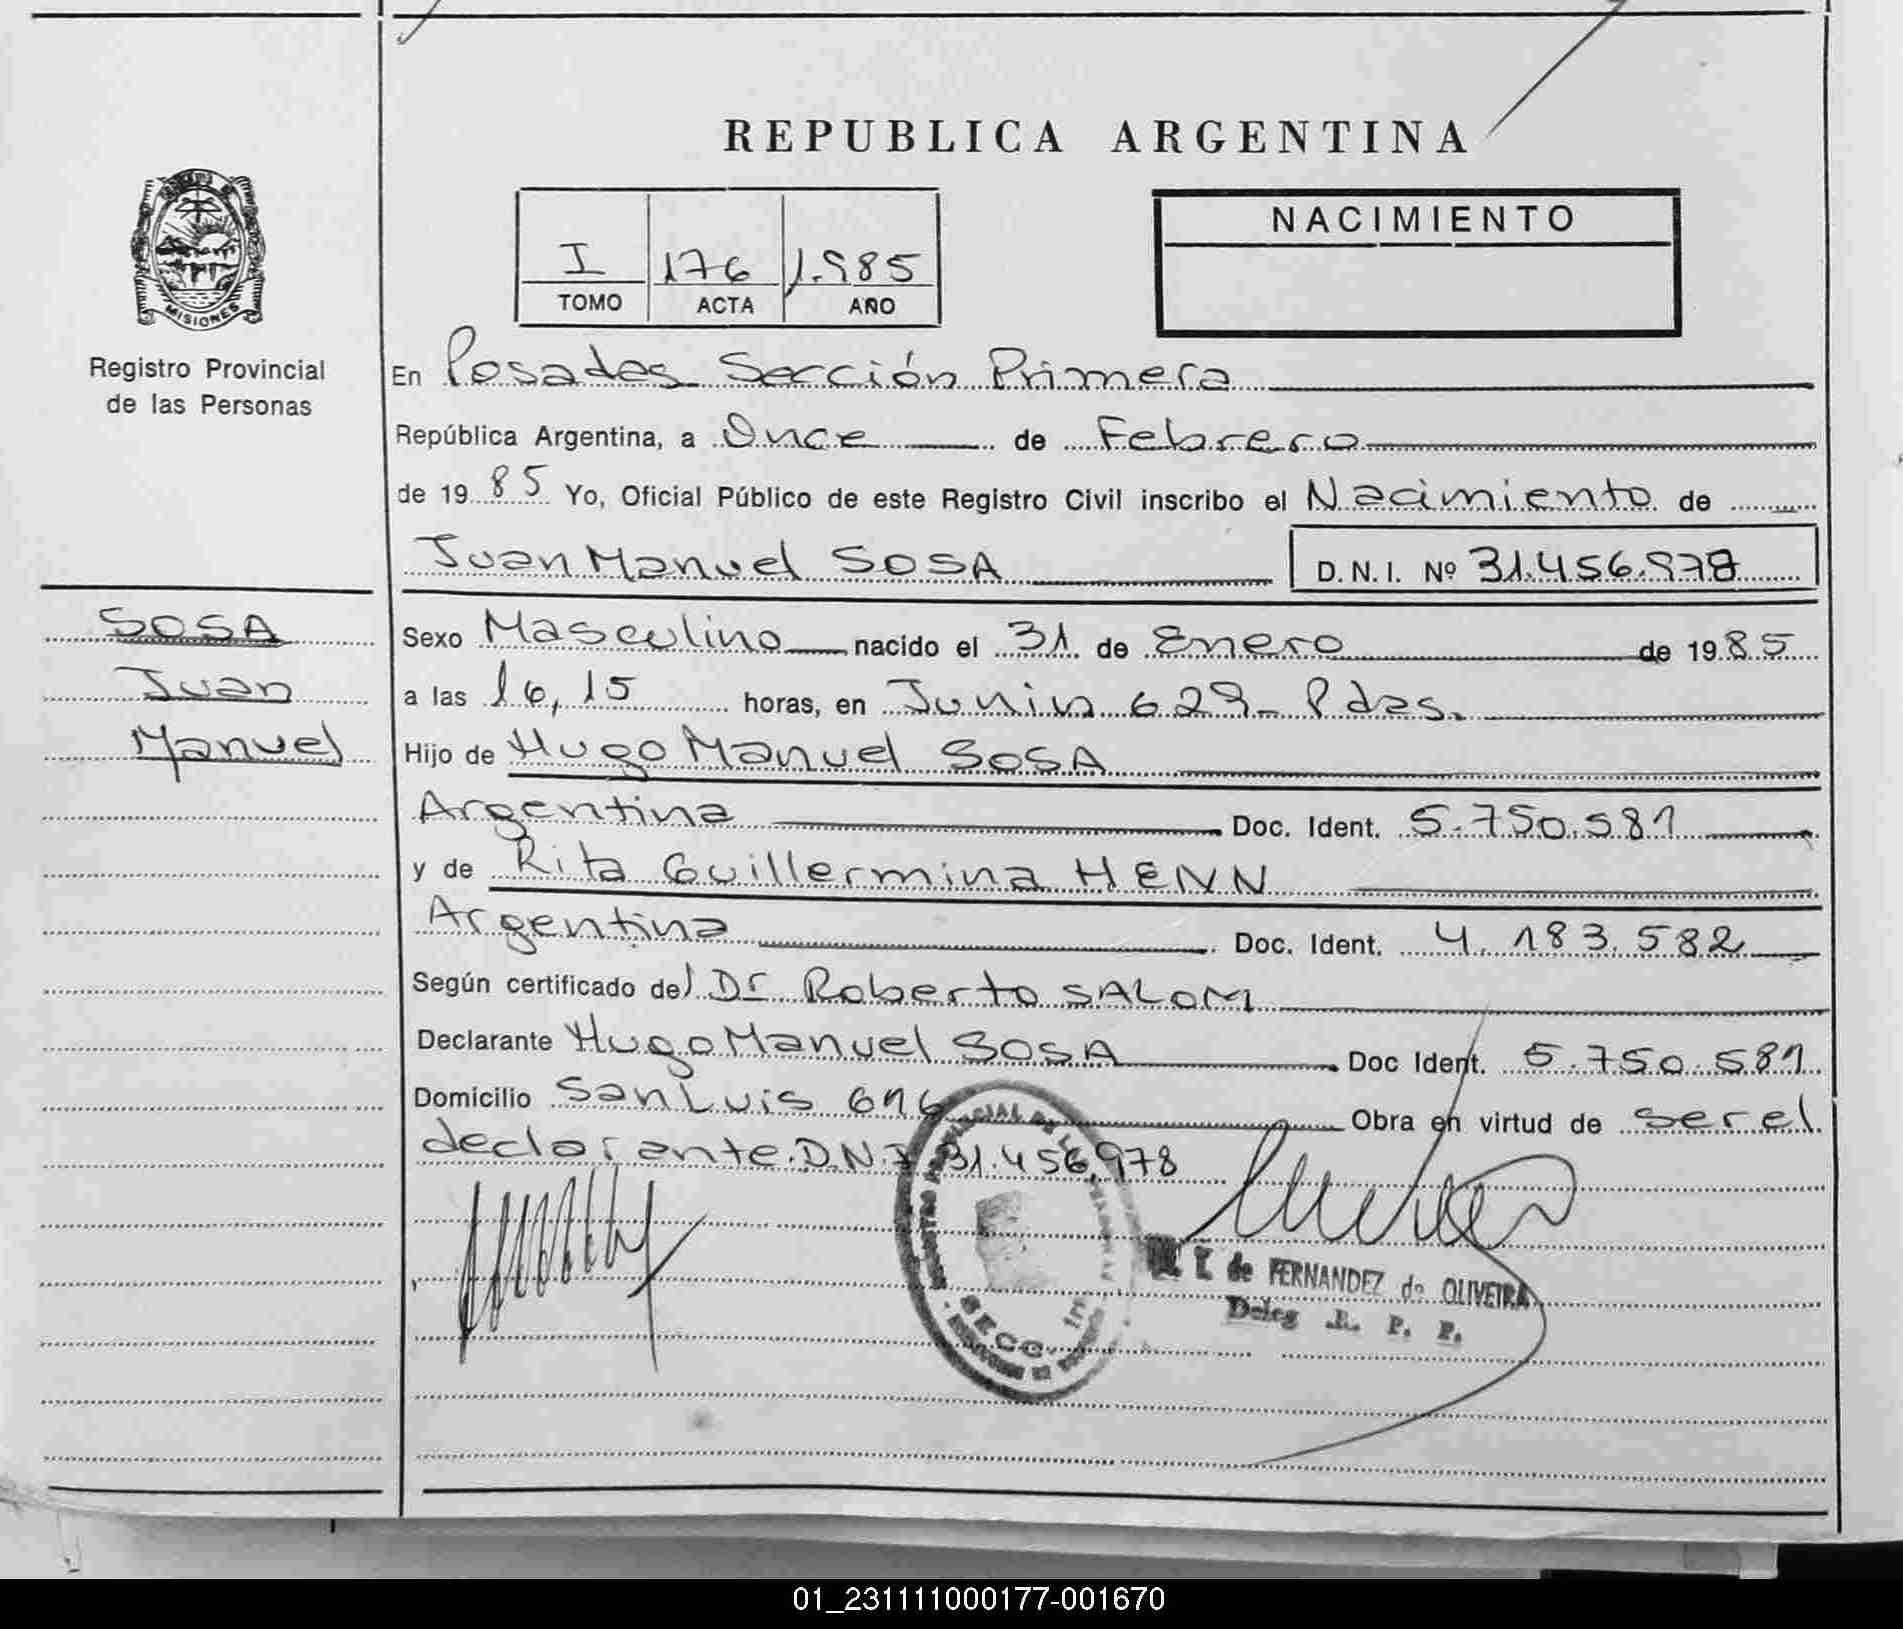 REPUBLICA ARGENTINA
MISIONES
Registro Provincial
de las Personas
I 176 1.985
TOMO ACTA AÑO
NACIMIENTO
En Posadas Sección Primera
República Argentina, a Once de Febrero
de 1985 Yo, Oficial Público de este Registro Civil inscribo el Nacimiento de
Juan Manuel SOSA D.N.I. Nº 31.456.978
SOSA
Juan
Manuel
Sexo Masculino nacido el 31 de Enero de 1985
a las 16,15 horas, en Junin 629- Pdas.
Hijo de Hugo Manuel SOSA
Argentina Doc. Ident. 5.750.581
y de Rita Guillermina HENN
Argentina Doc. Ident. 4.183.582
Según certificado del Dr Roberto SALOM
Declarante Hugo Manuel SOSA Doc Ident. 5.750.581
Domicilio San Luis 616 Obra en virtud de ser el
declarante. D.N.I 31.456.978
SECC.
de FERNANDEZ de OLIVEIRA
Deleg R. P. P.
01_231111000177-001670